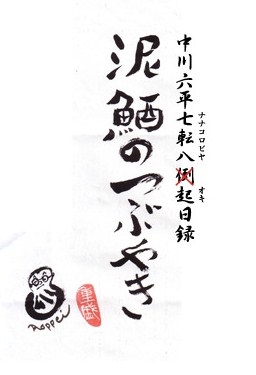 中川六平七転八倒起日録
ナナコロビヤ オキ
泥鰌のつぶやき
Roppei